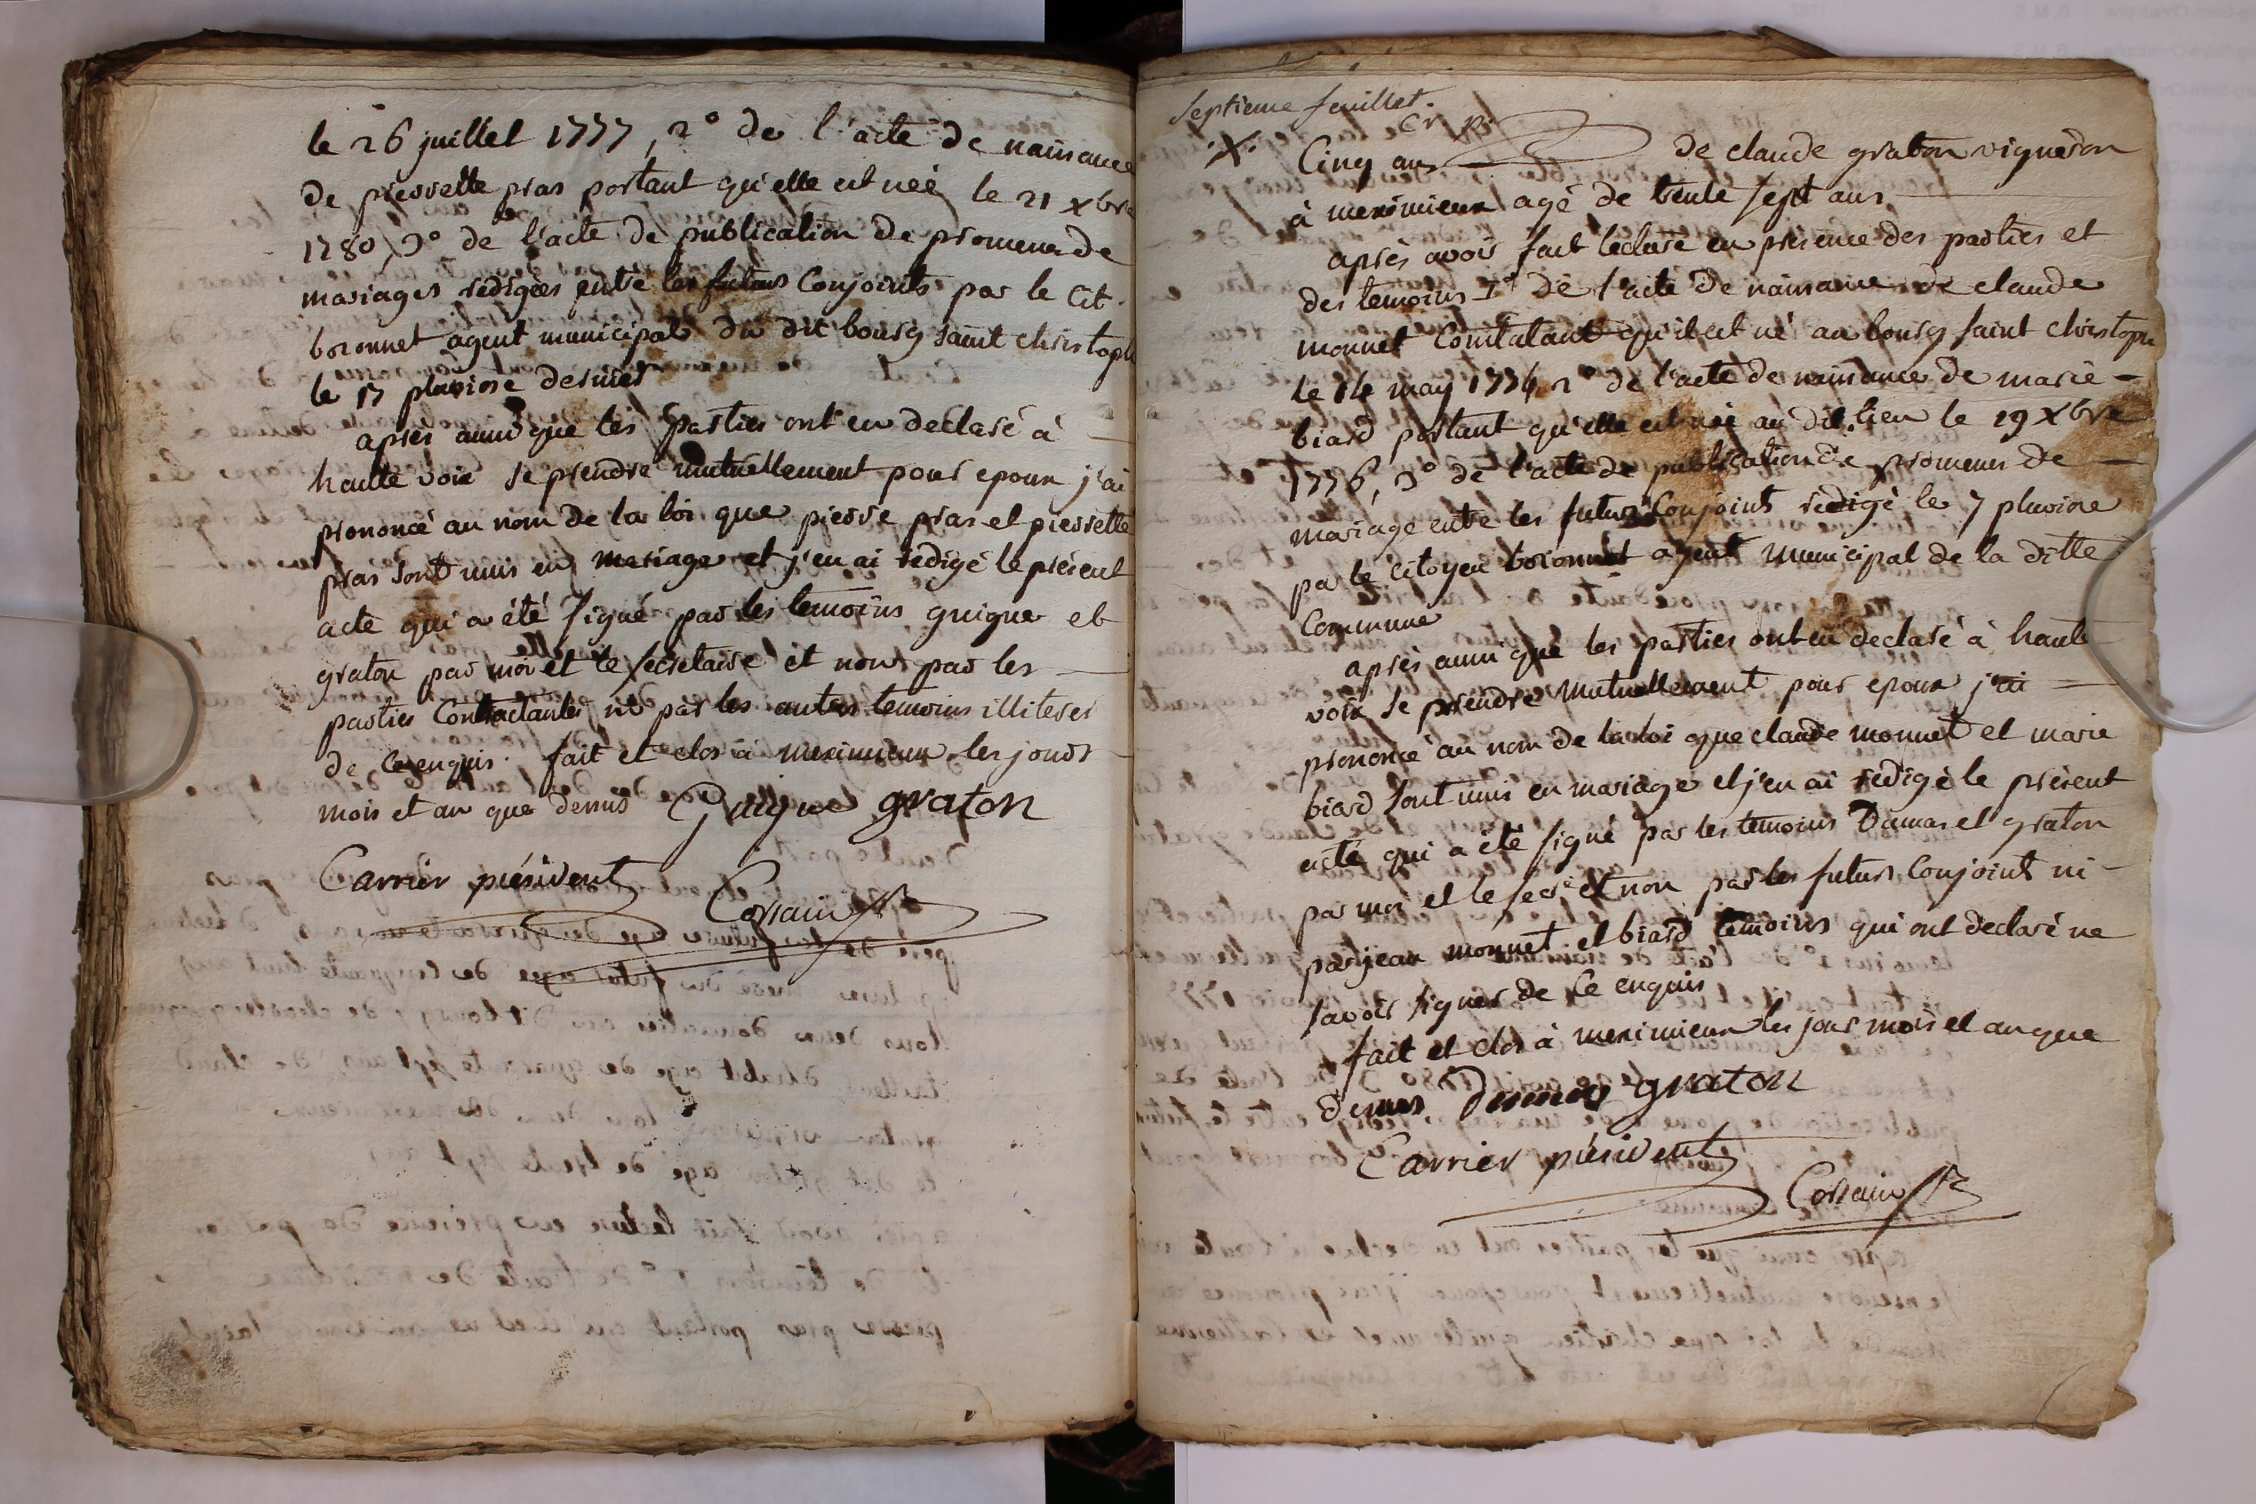 le 26 juillet 1777, 2° de l'acte de naissance
de pierrette pras portant qu'elle est neé le 21 xbre
1780, 3° de l'acte de publication de promesse de
mariages redigées entre les futurs Conjoints par le Cit.
boronnet agent municipal du dit bourg saint christophe
le 17 pluviose dernier
apres aussi que les parties ont eu declaré à
haulte voix se prendre mutuellement pour epoux j'ai
prononcé au nom de la loi que pierre pras et pierrette
pras sont unis en mariage et j'en ai redigé le présent
acte qui a été signé par les temoins guigue et
graton par moi et le secretaire et non par les
parties Contractantes ni par les autres temoins illiteres
de ce enquis. fait et clos à meximieux les jours
mois et an que dessus Guigue graton
Carrier président Corsain sre
Septieme feuillet.
Cr pt
.X. Cinq ans de claude graton vigneron
à meximieux agé de trente sept ans
après avoir fait lecture en présence des parties et
des temoins 1° de l'acte de naissance de claude
monnet Constatant qu'il est né au bourg saint christophe
le 14 may 1774 2° de l'acte de naissance de marie
biard portant qu'elle est née au dit lieu le 29 xbre
1776, 3° de l'acte de publication de promesses de
mariage entre les futurs Conjoint redigé le 7 pluviose
par le Citoyen boronnet agent municipal de la ditte
Commune
après aussi que les parties ont eu declaré à haute
voix se prendre mutuellement pour epoux j'ai
prononcé au nom de la loi que claude monnet et marie
biard sont unis en mariage et j'en ai redigé le présent
acte qui a été signé par les temoins Dumas et graton
par moi et le secre et non par les futurs Conjoint ni
par jean monnet et biard temoins qui ont declaré ne
savoir signer de ce enquis
fait et clos à meximieux les jour mois et an que
dessus. dumas graton
Carrier président
Corsain sre